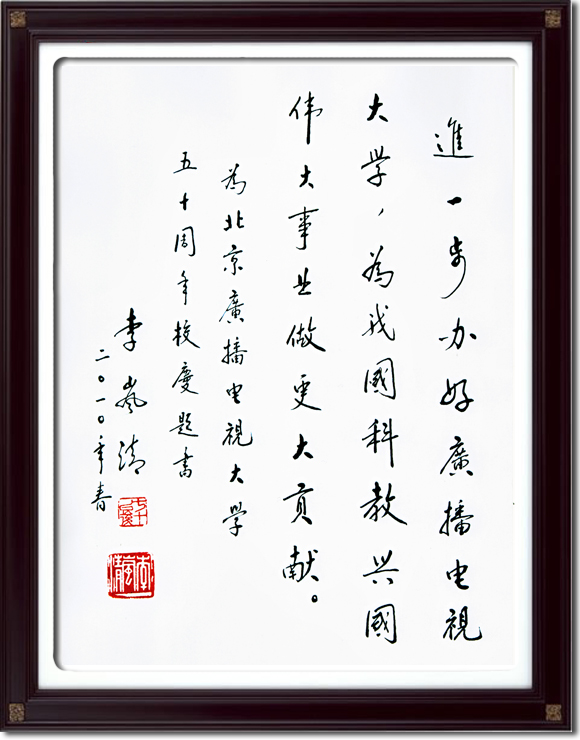 進一步办好廣播电視
大学，為我國科教兴國
伟大事业做更大贡献。
為北京廣播电視大学
五十周年校慶题書
李嵐清
二〇一〇年春
李嵐清